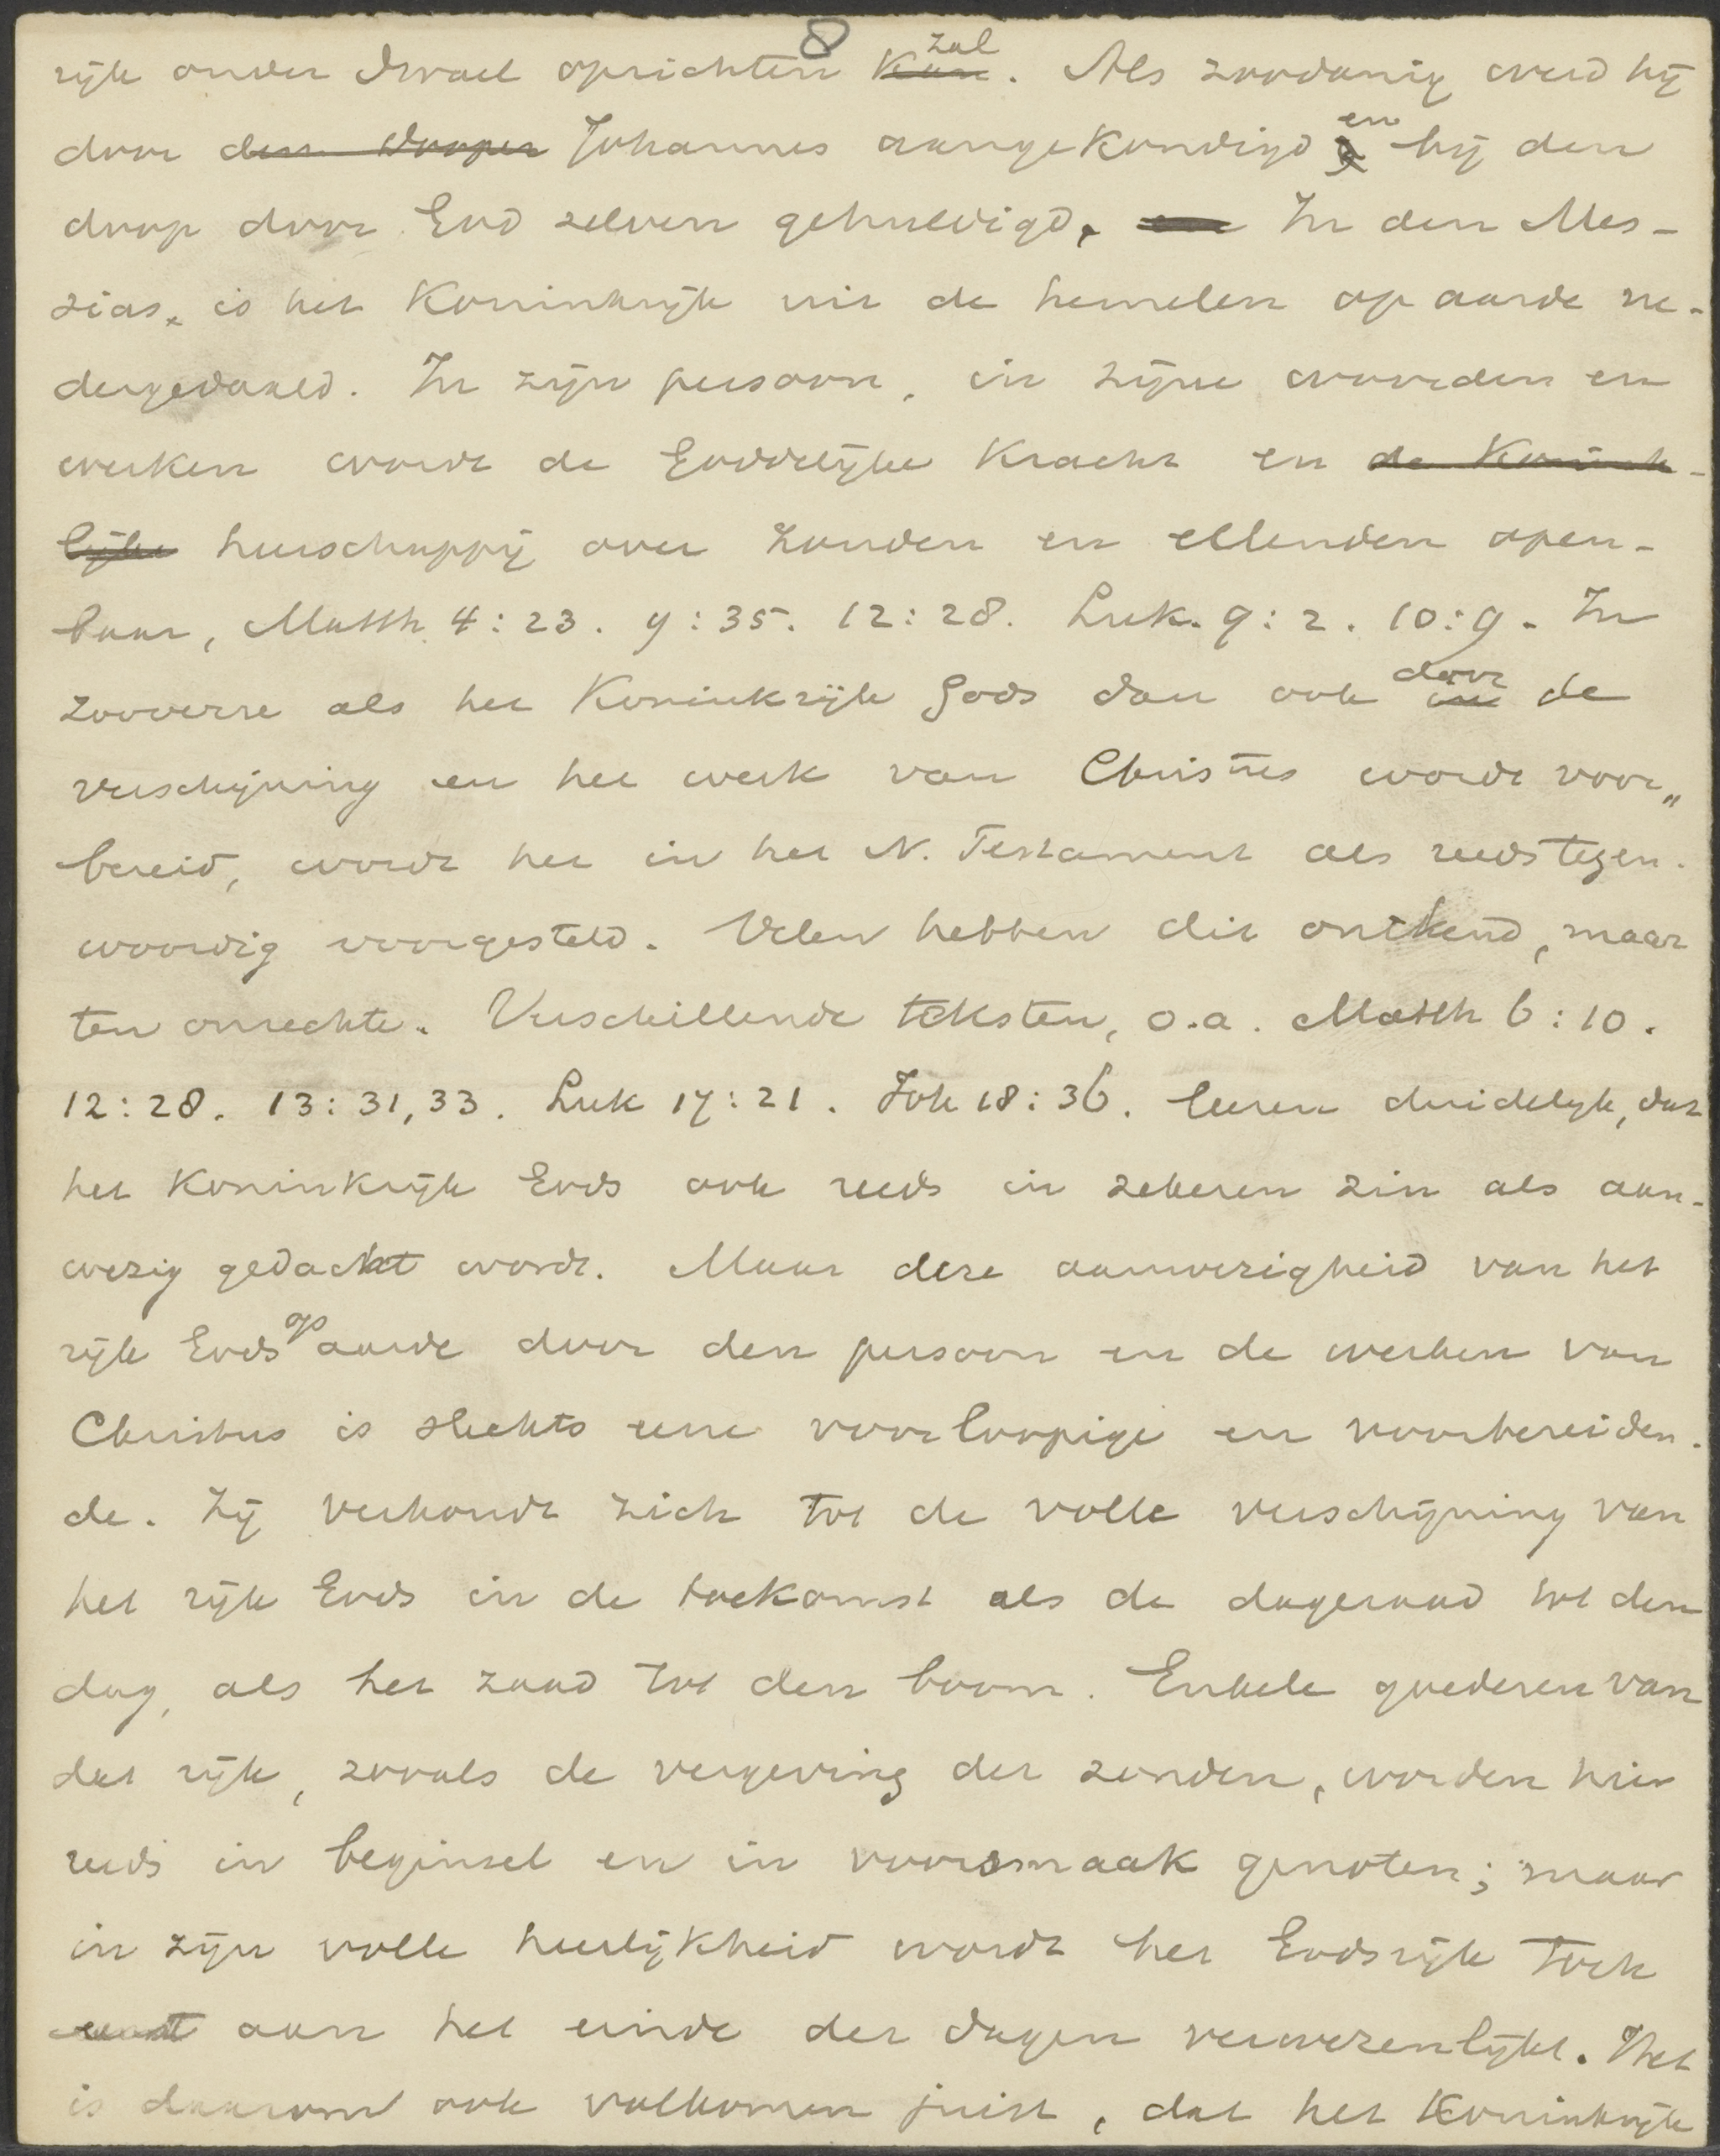 8
rijk onder Israel oprichten kan zal. Als zoodanig werd hij
door den dooper Johannes aangekondigd en bij den
doop door God zelven gehuldigd. en In den Mes-
sias is het Koninkrijk uit de hemelen op aarde ne-
dergedaald. In zijn persoon, in zijne woorden en
werken wordt de Goddelijke kracht en de Konink-
lijke heerschappij over zonden en ellenden open-
baar, Matth 4:23. 9:35. 12:28. Luk. 9:2. 10:9. In
zooverre als het Koninkrijk Gods dan ook door de
verschijning en het werk van Christus wordt voor„
bereid, wordt het in het N. Testament als reeds tegen-
woordig voorgesteld. Velen hebben dit ontkend, maar
ten onrechte. Verschillende teksten, o.a. Matth 6:10.
12:28. 13:31,33. Luk 17:21. Joh 18:36. leeren duidelijk, dat
het Koninkrijk Gods ook reeds in zekeren zin als aan-
wezig gedacht wordt. Maar deze aanwezigheid van het
rijk Gods op aarde door den persoon en de werken van
Christus is slechts eene voorloopige en voorbereiden-
de. Zij verhoudt zich tot de volle verschijning van
het rijk Gods in de toekomst als de dageraad tot den
dag, als het zaad tot den boom. Enkele goederen van
dat rijk, zooals de vergeving der zonden, worden hier
reeds in beginsel en in voorsmaak genoten; maar
in zijn volle heerlijkheid wordt het Godsrijk toch
eerst aan het einde der dagen verwezenlijkt. Het
is daarom ook volkomen juist, dat het Koninkrijk